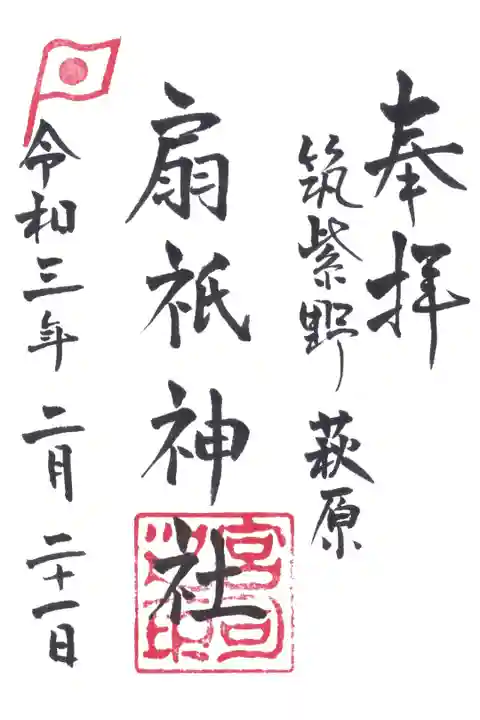 奉拝
筑紫野 萩原
扇祇神社
宮司之印
令和三年 二月 二十一日